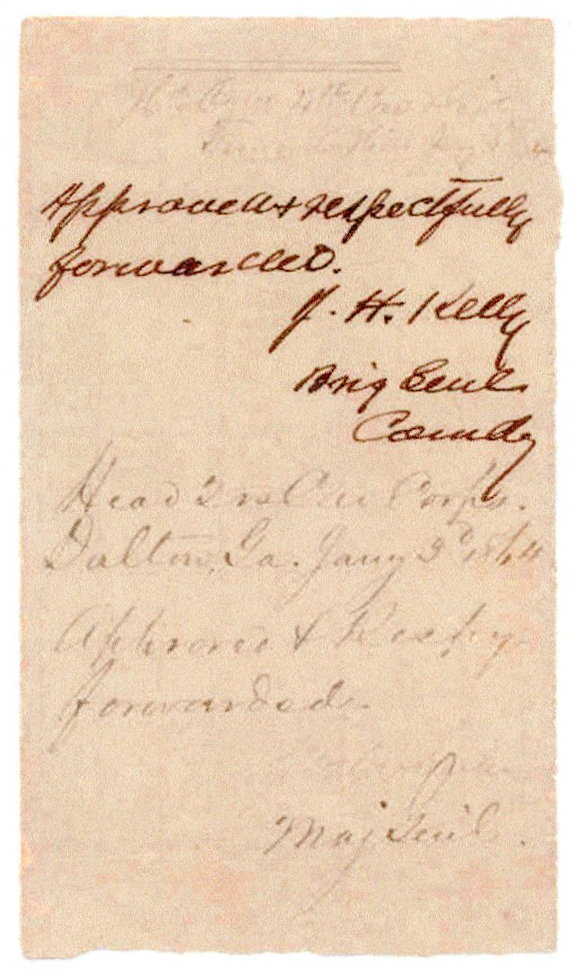 Hd Qrs
Approved & respectfully
forwarded.
J. H. Kelly
Brig Genl
Comdg
Head Qrs Cav Corps.
Dalton, Ga. Jany 3d 1864
Approved & Respy
forwarded.
Maj Genl.